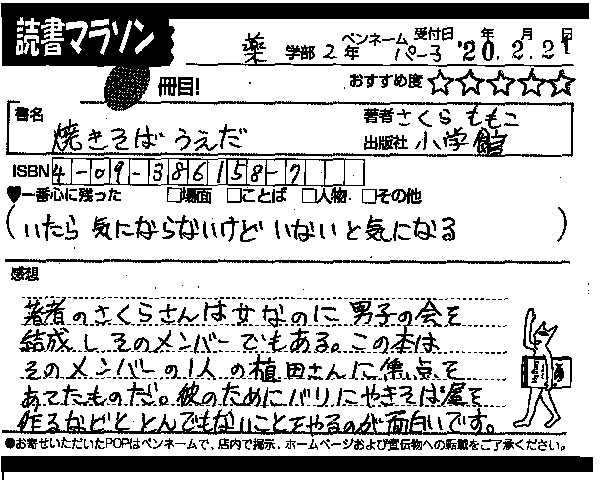 読書マラソン
薬 学部 2 年 ペンネーム パー子 受付日 '20年 2月 21日
冊目! おすすめ度 ☆☆☆☆☆
書名 焼きそばうえだ
著者 さくらももこ
出版社 小学館
ISBN 4-09-386158-7
♥一番心に残った □場面 □ことば □人物 □その他
(いたら気にならないけどいないと気になる)
感想
著者のさくらさんは女なのに男子の会を
結成しそのメンバーでもある。この本は
そのメンバーの1人の植田さんに焦点を
あてたものだ。彼のためにバリにやきそば屋を
作るなどととんでもないことをやるのが面白いです。
●お寄せいただいたPOPはペンネームで、店内で掲示、ホームページおよび宣伝物への転載をご了承ください。